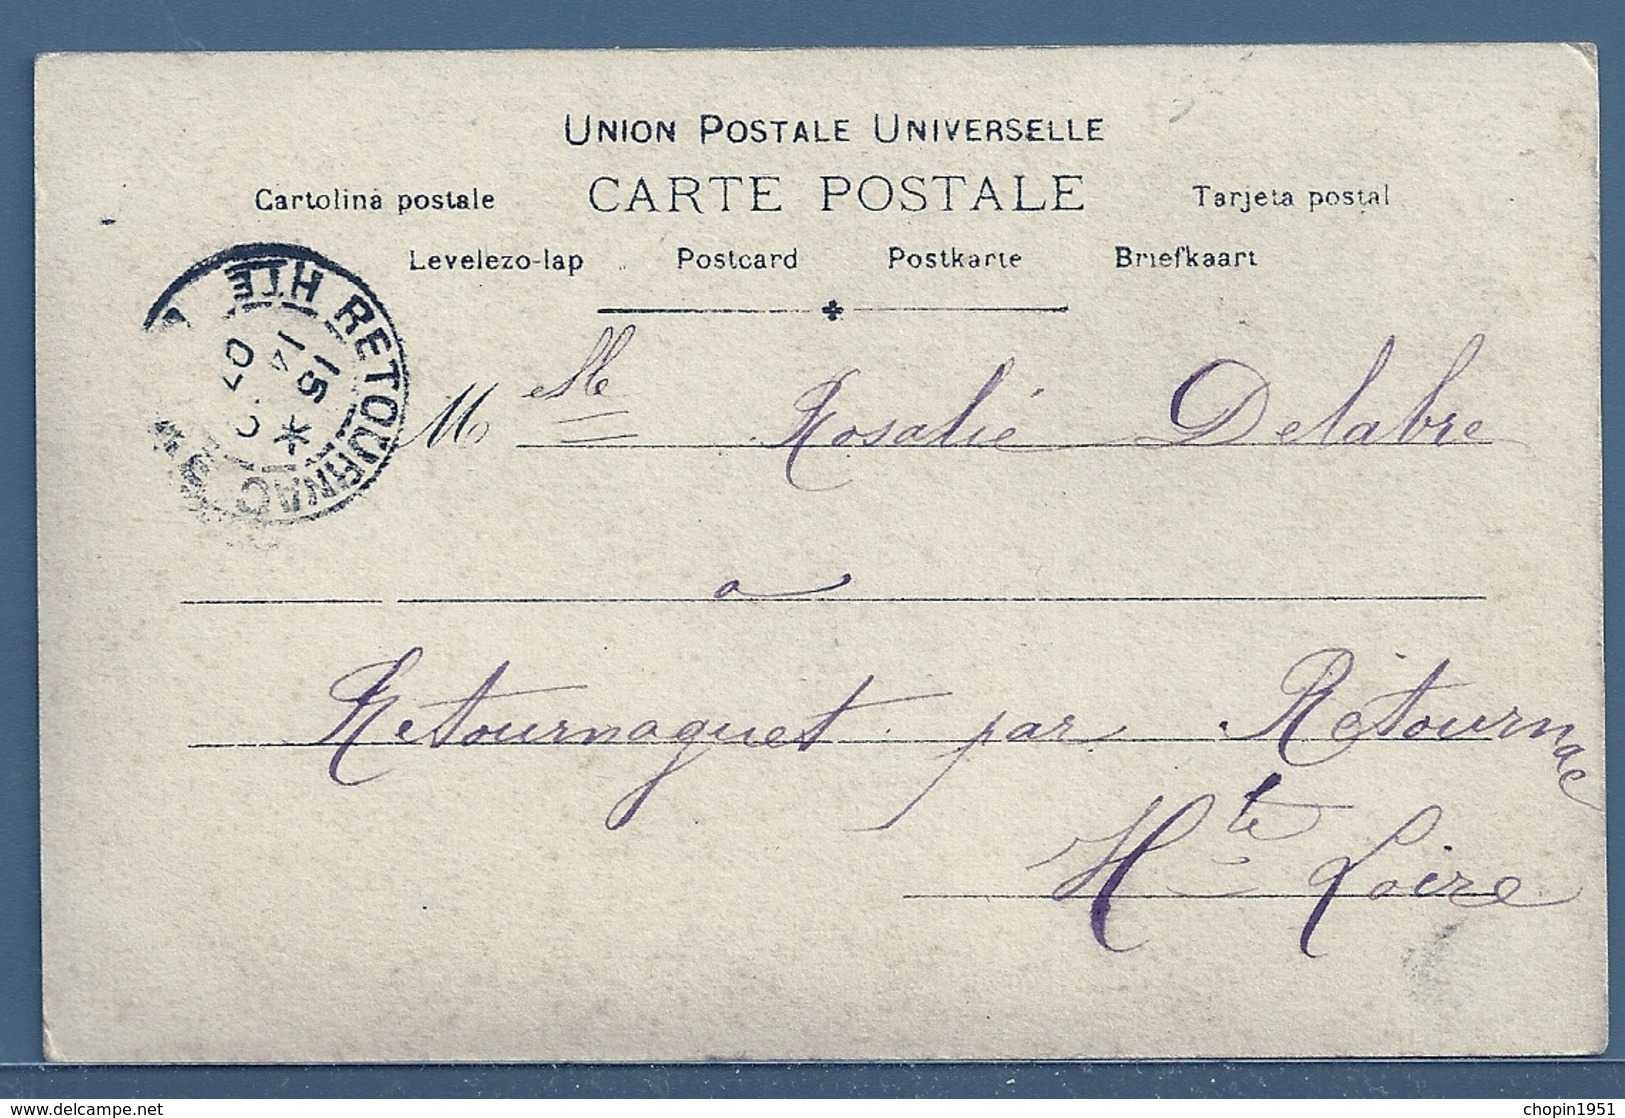 UNION POSTALE UNIVERSELLE
CARTE POSTALE
Cartolina postale
Tarjeta postal
Levelezo-lap
Postcard
Postkarte
Briefkaart
RETOURNAC HTE
15
14
07
M elle Rosalie Delabre
a
Retournaguet par Retournac
Hte Loire
www.delcampe.net
chopin1951